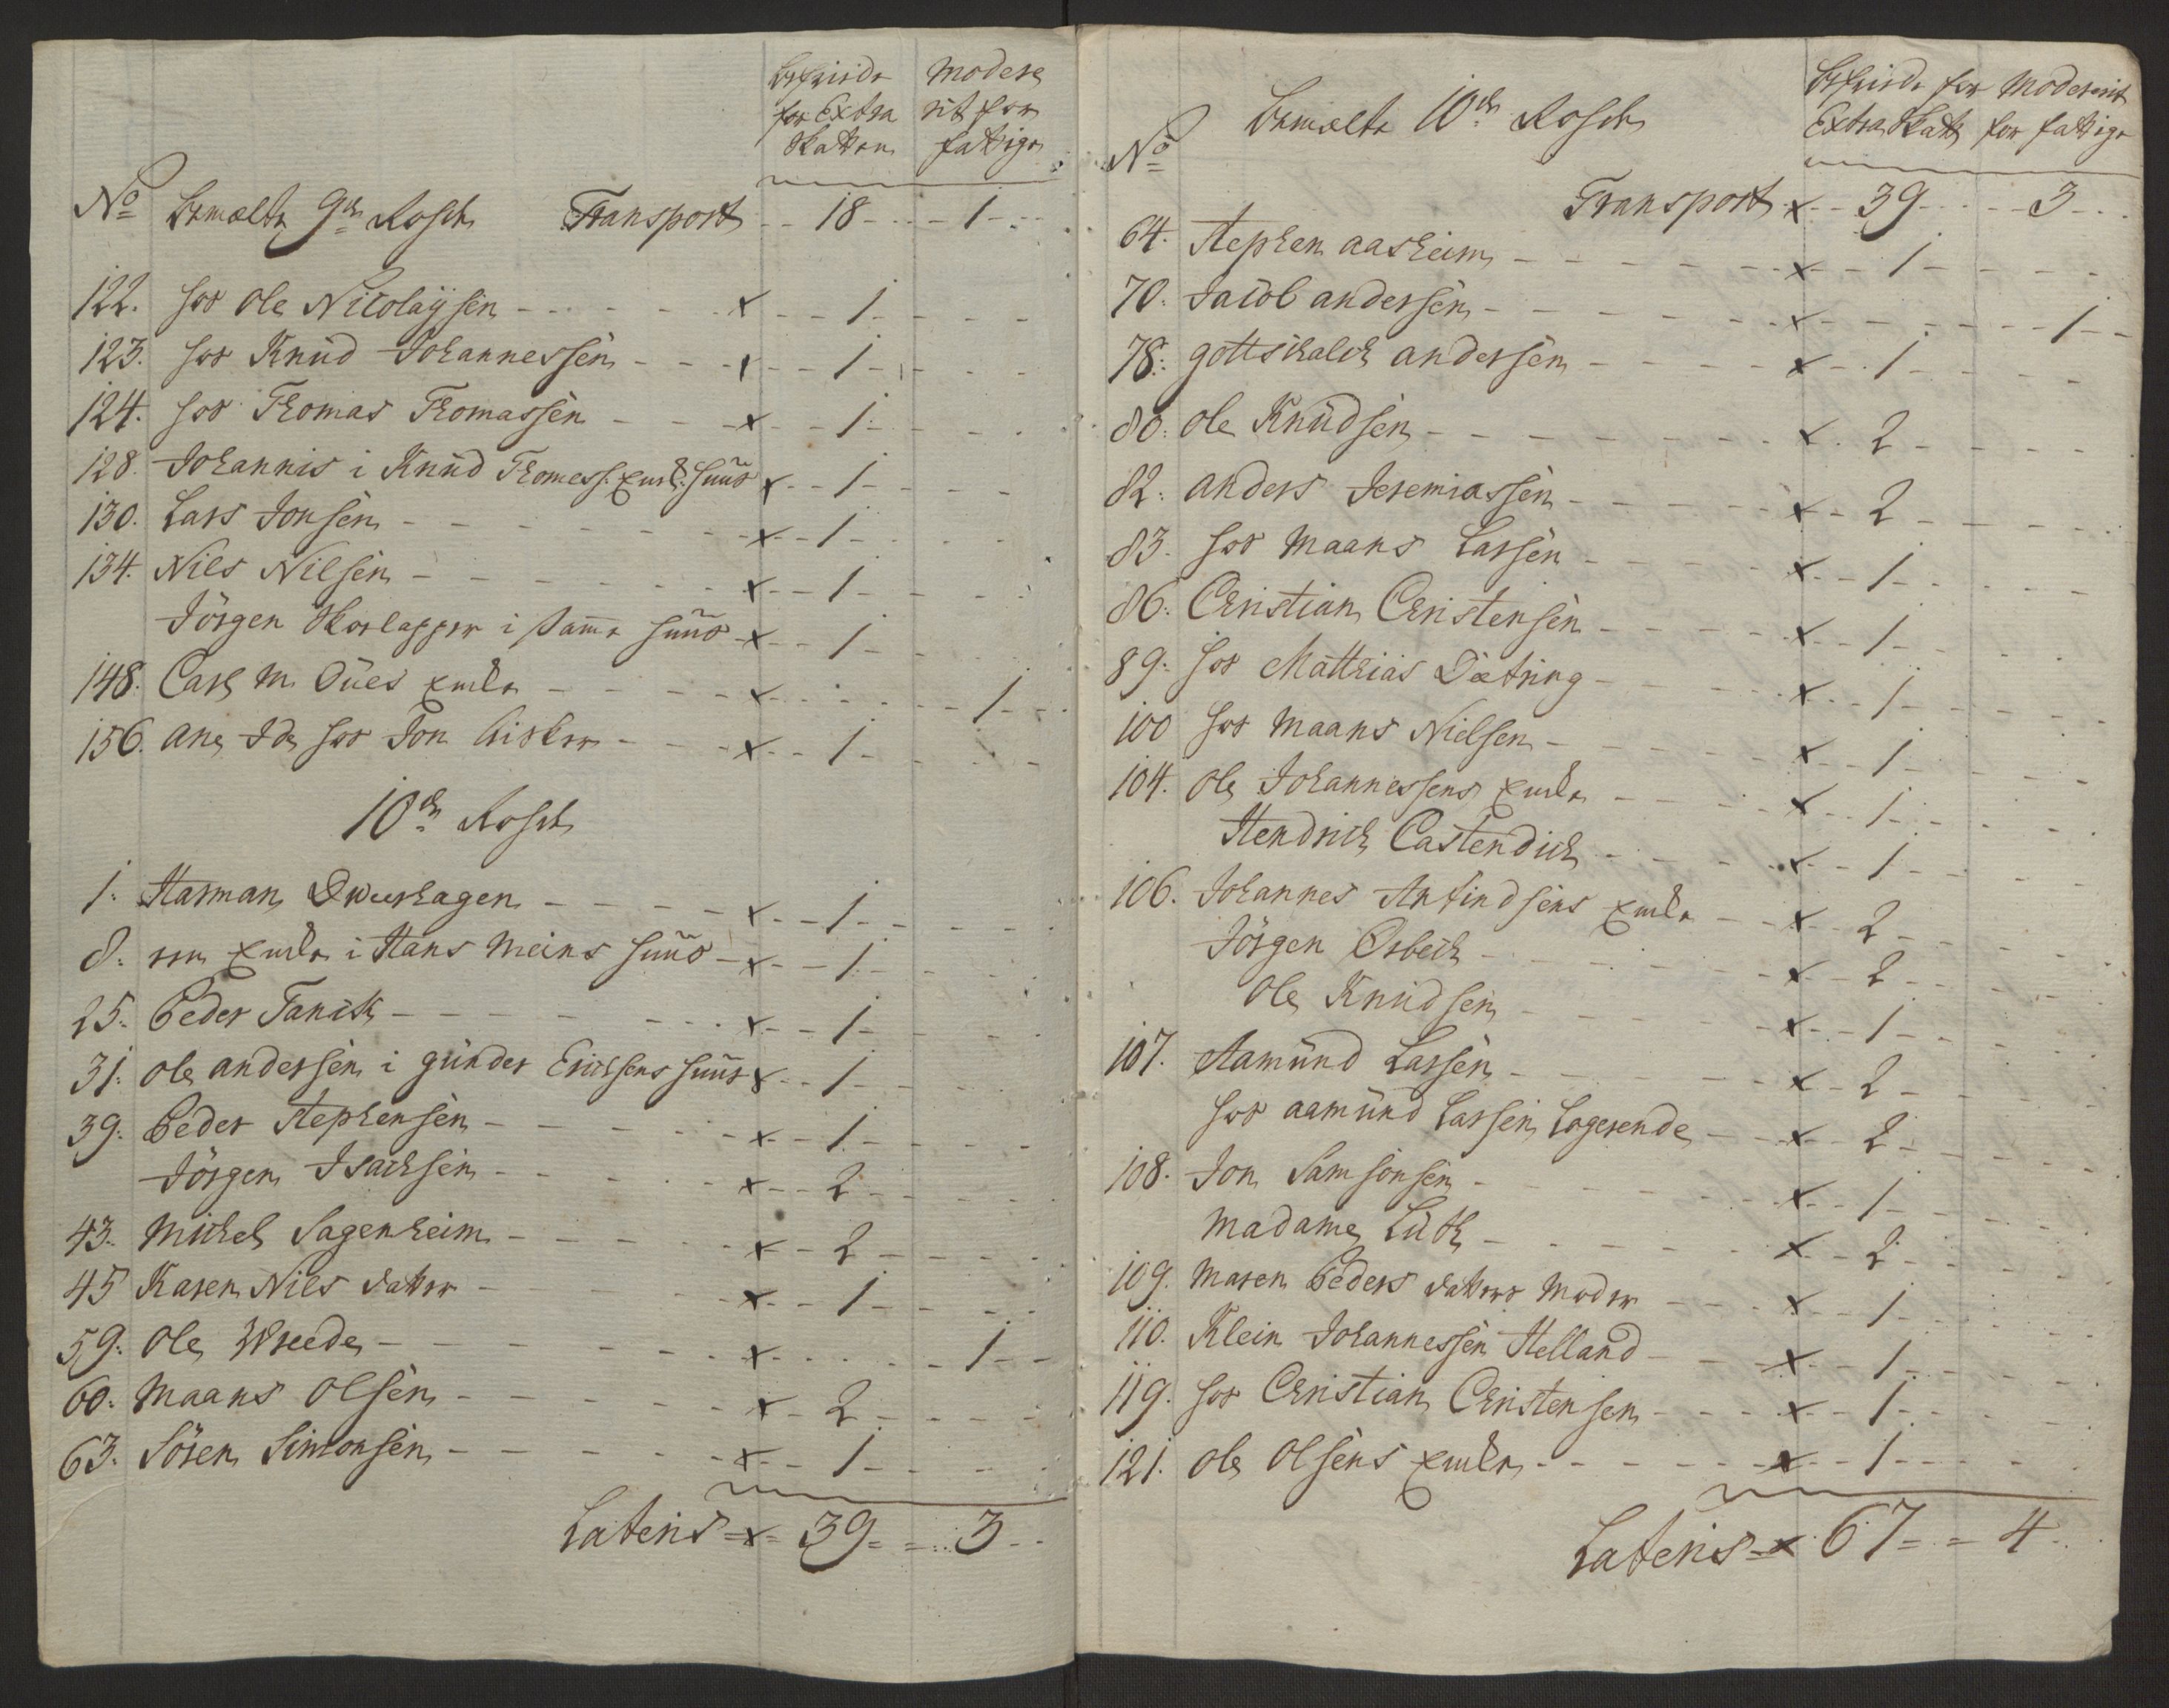 befriede for Extra Skatten
Moderert for fattige
No bemælte 9de Rode Transport 18 1
122. hos Ole Nicolaysen x 1
123. hos Knud Johannessen x 1
124. hos Thomas Thomassen x 1
128. Johannis i Knud Thomess: Huus x 1
130. Lars Jonsen x 1
134. Niles Nilsen x 1
Jörgen Skoelapper i samme Huus x 1
148. Carl M. Dues Enke x 1
156. Ane Ids hos Jon x 1
10de Rode
1. Harman Dwerhagen x 1
8. en Enke i Hans Meins Huus x 1
25. Peder Tanck x 1
31. Ole Andersen i Gunder Erichsens Huus x 1
39. Peder Stephensen x 1
Jörgen Isachsen x 2
43. Michel Sagenheim x 2
45 Karen Niles datter x 1
59. Ole Wreede x 1
60. Maans Olsen x 2
63. Sören Simonsen x 1
Lateris x 39 3
No bemælte 10de Rode
befriede for Extra Skatt
Moderert for fattige
Transport x 39 3
64. Stephen Aasheim x 1
70. Jacob Andersen x 1
78. Gottschalch Andersen x 1
80. Ole Knudsen x 2
82. Anders Jeremiassen x 2
83. hos Maans Larsen x 1
86. Christian Christensen x 1
89. hos Matthias Dætring x 1
100 hos Maans Nielsen x 1
104. Ole Johannessens Enke x 1
Hendrich Castendich x 1
106. Johannes Anfindsens Enke x 2
Jörgen Osbech x 2
Ole Knudsen x 1
107. Aamund Larsen x 2
hos Aamund Larsen Logerende x 2
108. Jon Samsonsen x 1
Madame Lüth x 2
109. Maren Peders datters Moder x 1
110. Klein Johannessen Helland x 1
119. hos Christian Christensen x 1
121. Ole Olsens Enke x 1
Lateris x 67 4